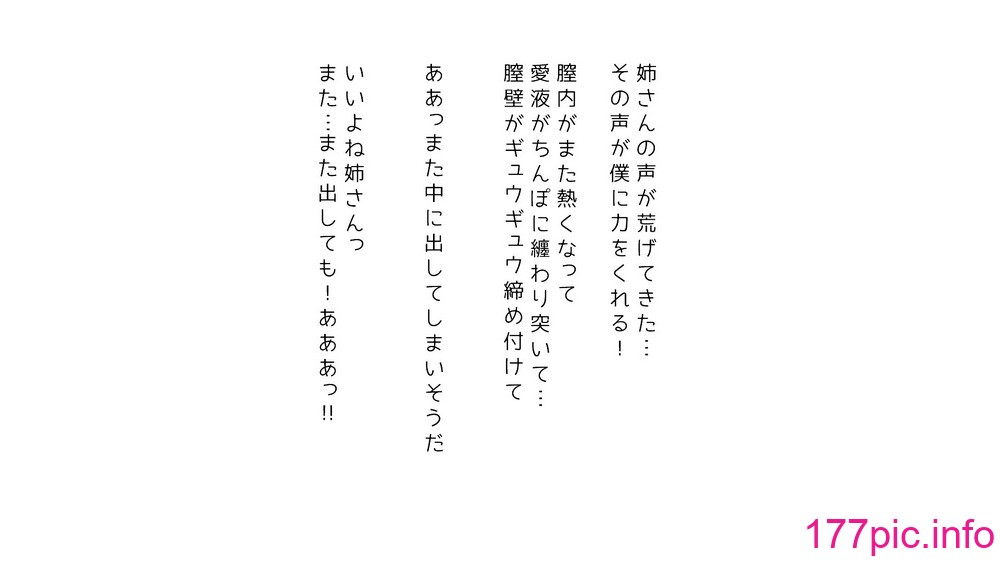 姉さんの声が荒げてきた…
その声が僕に力をくれる！
膣内がまた熱くなって
愛液がちんぽに纏わり突いて…
膣壁がギュウギュウ締め付けて
ああっまた中に出してしまいそうだ
いいよね姉さんっ
また…また出しても！あああっ!!
177pic.info